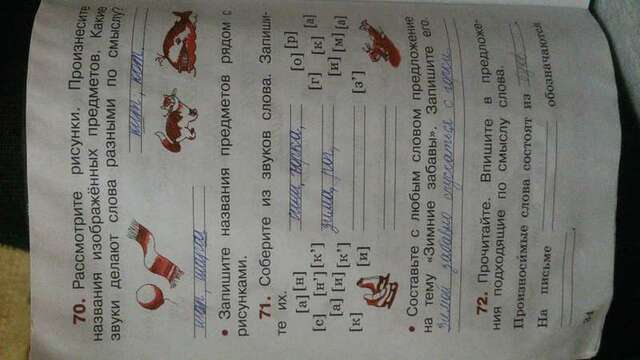 70. Рассмотрите рисунки. Произнесите
названия изображённых предметов. Какие
звуки делают слова разными по смыслу?
кит, кот.
• Запишите названия предметов рядом с
рисунками.
71. Соберите из звуков слова. Запиши-
те их.
[а] [н] [о] [р]
[с] [н'] [к'] [г] [к] [а]
[а] [и] [к'] [и] [м] [а]
[к] [и] [з']
зима,
• Составьте с любым словом предложение
на тему «Зимние забавы». Запишите его.
забавы с горки
72. Прочитайте. Впишите в предложе-
ния подходящие по смыслу слова.
Произноси́мые слова состоят из
На письме обозначаются